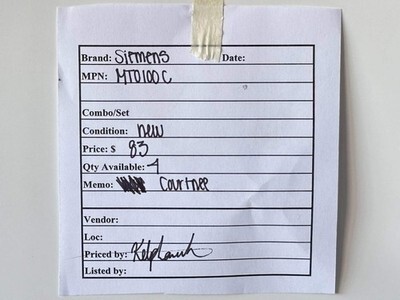 Brand: Siemens Date:
MPN: MT0100C
Combo/Set
Condition: new
Price: $ 83
Qty Available: 1
Memo: Courtnee
Vendor:
Loc:
Priced by:
Listed by: